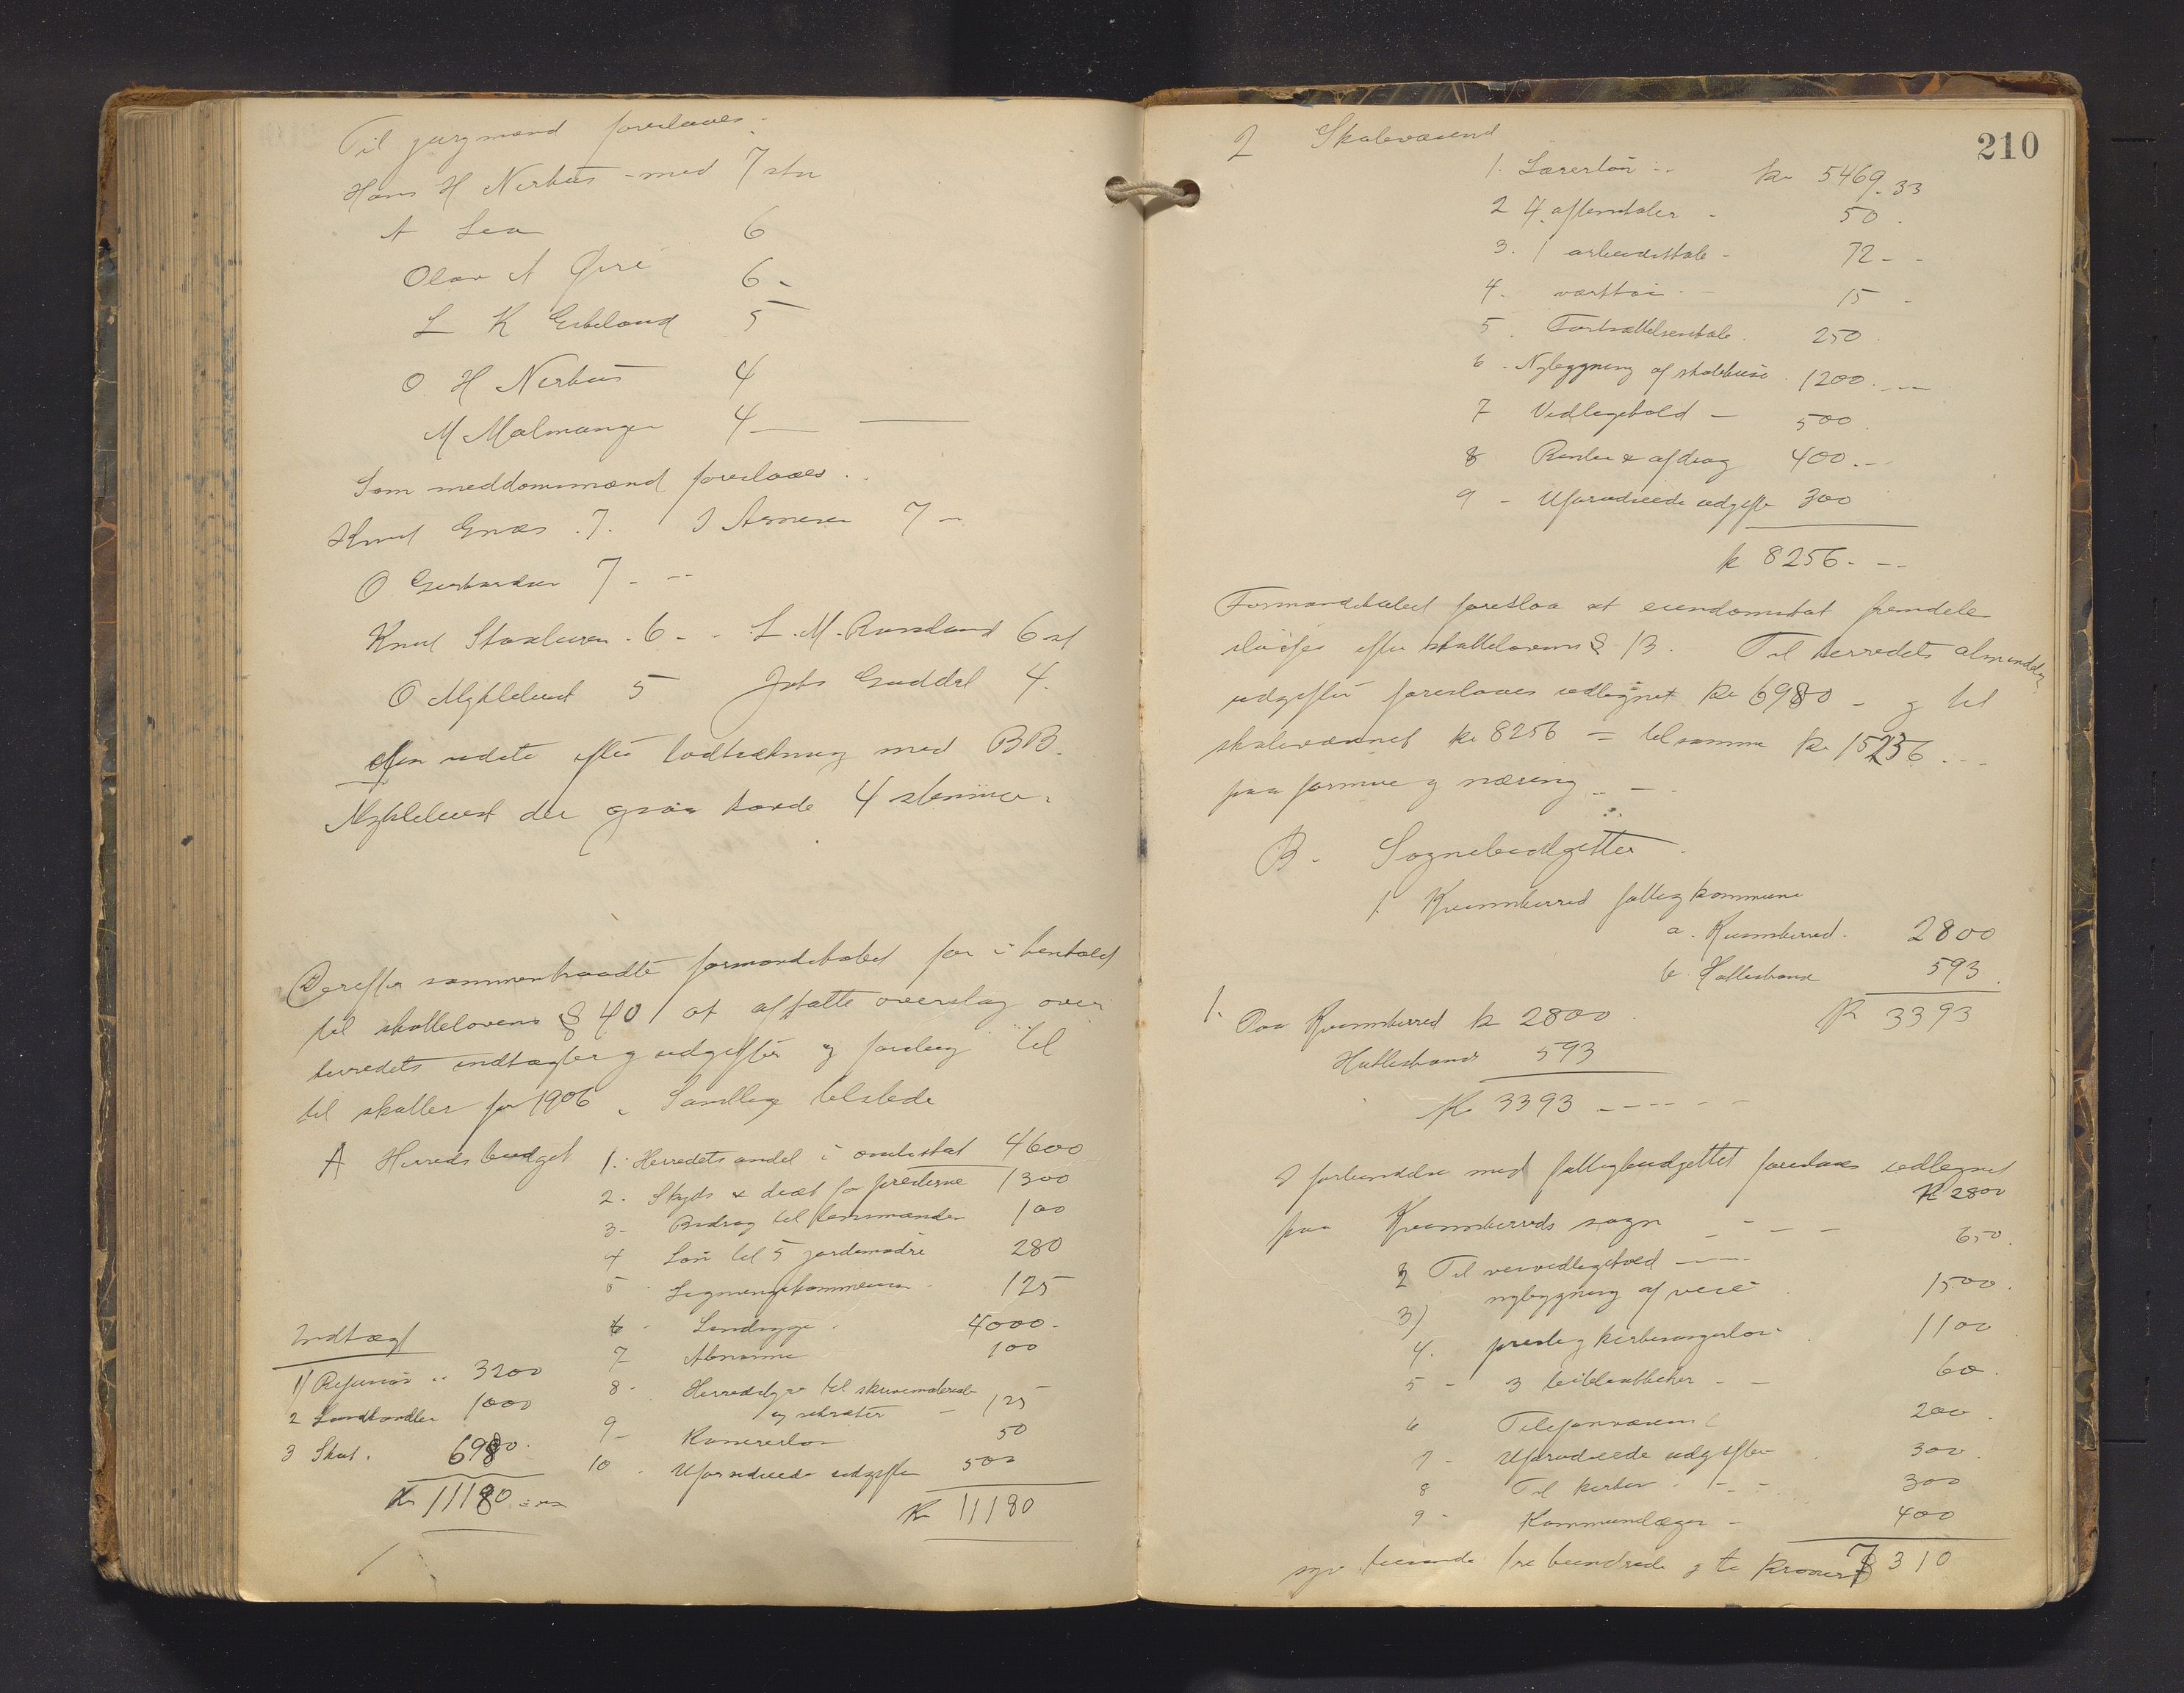 Til jurymænd foreslaaes.
Hans H Nerhus - med 7 stm
A Lea 6
Olav A Øvre 6 -
L K Eikeland 5
O. H Nerhus 4
M Malmanger 4
Som meddomsmænd foreslaaes.
Knut Græs . 7. I Arnesen 7 -
O Gerhardsen 7 - -
Knut Staxlusen . 6 - - L. M. Røvsland 6 st
O Myklebust 5 Jets Guddal 4.
den sidste efter lodtrækning med BB.
Myklebust der ogsaa havde 4 stemmer.
Derefter sammentraadte formandskabet for i henhold
til skattelovens § 40 at affatte overslag over
herredets indtægter og udgifter og forslag til
til skatter for 1906. Samtlige tilstede
A Herredsbudget 1. Herredets andel i amtsskat 4600
2. Skyds & diæt for presterne 1300
3 - Bidrag til lensmanden 100
4 Løn til 5 jordemødre 280
5 Ligningskommission 125
6 - Sindssyge . 4000 -
7 - Abnorme 100
8 - Herredstyre til skrivemateriale
og sekretær - 125
9 - Kasererløn 50
10 . Uforudseede udgifter 500
Kr 11180
Indtægt
1) Refusion .. 3200
2 Landhandler 1000
3 Skat . 6980.
Kr 11180
210
2 Skolevæsend
1. Lærerløn - - kr 5469.33
2 4 aftenskoler - 50 .
3. 1 arbeidsskole - 72 - -
4 - værktøi - - 15 -
5 . Fortsættelsesskole . 250 .
6 - Nybygning af skolehuse . 1200 . - -
7 Vedligehold - 500 .
8 Renter & afdrag 400 . - -
9 - Uforudseede udgifter 300
k 8256 - - -
Formandskabet foreslaa at eiendomsskat fremdeles
sløifes efter skattelovens § 13. Til herredets almindelig
udgifter foreslaaes udlignet kr 6980 - og til
skolevæsenet kr 8256 = tilsammen kr 15236 . . .
paa formue og næring - -
B - Sognebudgetter .
1. Kvamsherred fattigkommune
a. Kvamsherred . 2800
b. Hatlestrand 593 .
Kr 3393
1. Paa Kvamsherred kr 2800 .
Hatlestrand 593
Kr 3393 - - - - -
I forbindelse med fattigbudgettet foreslaaes udlignet
paa Kvamsherreds sogn - - - Kr 2800
2 Til veivedligehold - - 650 .
3) nybygning af veie . 1500 .
4. prest og kirkesangerløn . 1100
5 - 3 - - 60 .
6 Telefonvæsenet 200 .
7 - Uforudseede udgifter 300
8 Til kirken . - - 300
9 - Kommunelæger - 400
syv tusende tre hundrede og ti kroner 7310